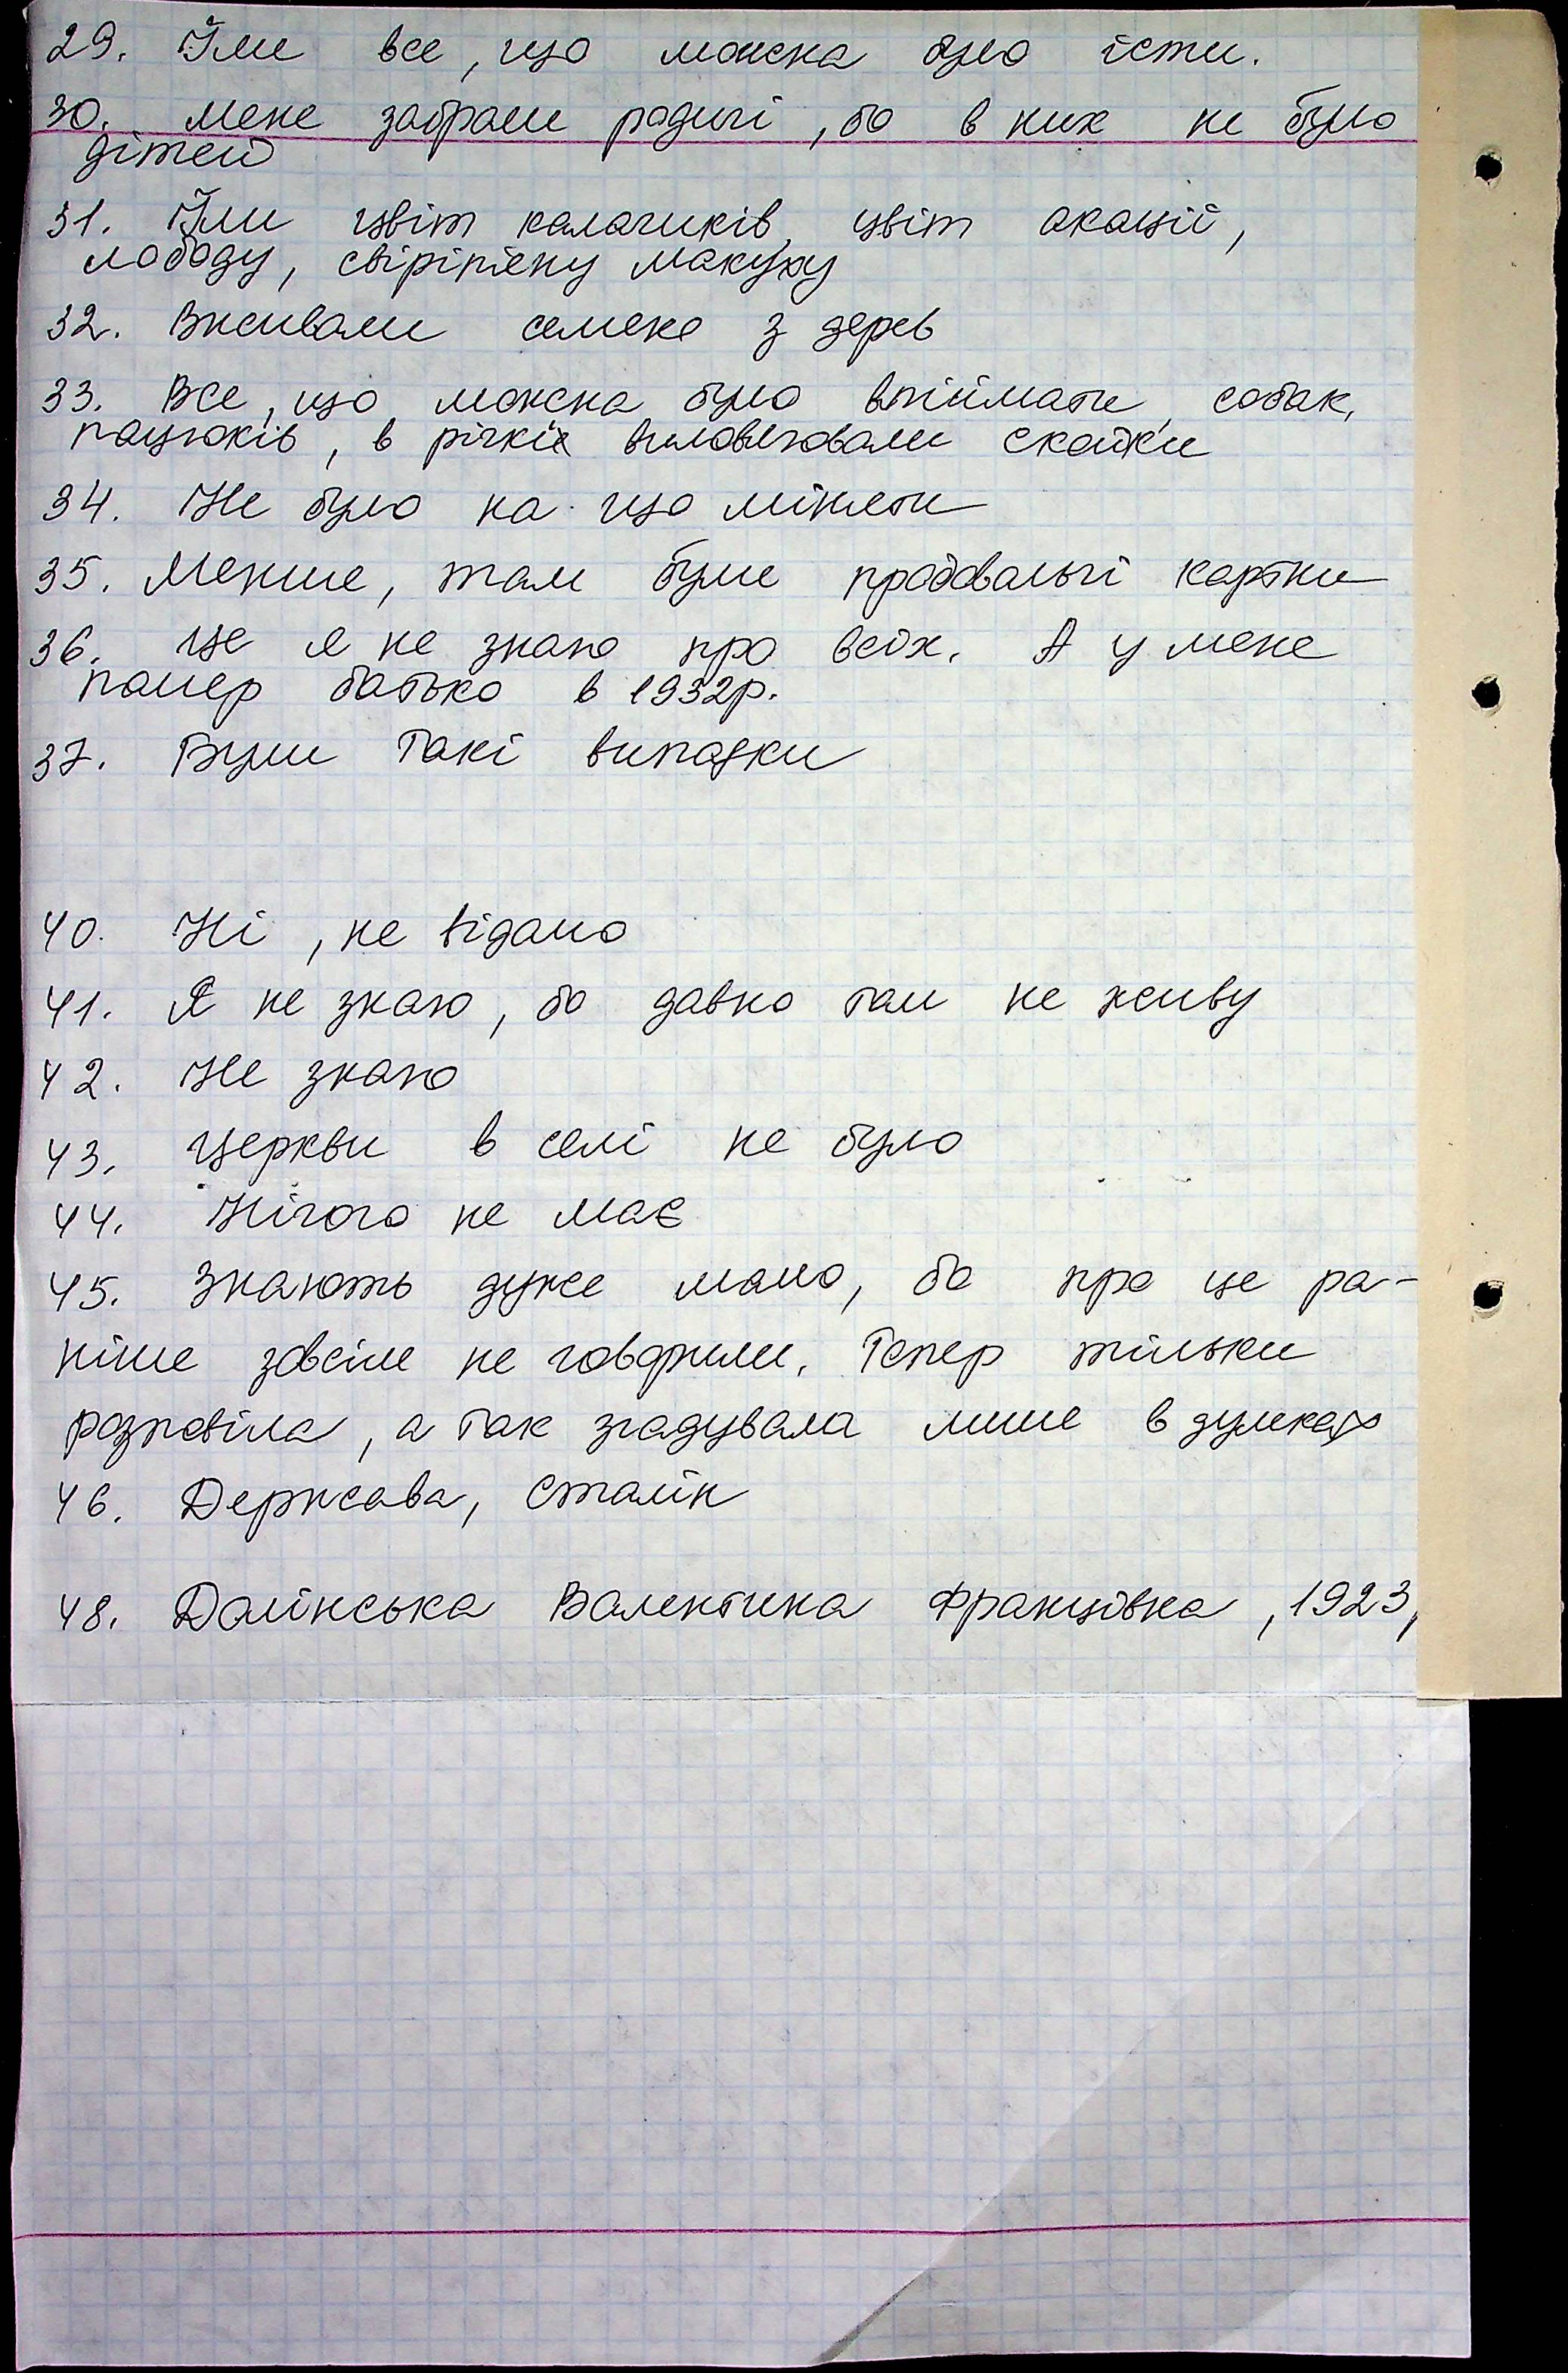 29. Їли все, що можна було їсти.
30. Мене забрали родичі, бо в них не було
дітей
31. Їли цвіт калачиків, цвіт акації,
лободу, свіріпіену макуху
32. Вживали семена з дерев
33. Все, що можна було впіймати, собак,
пацюків, в річках виловлювали скойки
34. Не було на що міняти
35. Менше, там були продовальчі картки
36. Це я не знаю про всіх. А у мене
помер батько в 1932р.
37. Були такі випадки
40. Ні, не відомо
41. Я не знаю, бо давно там не живу
42. Не знаю
43. Церкви в селі не було
44. Нічого не має
45. Знають дуже мало, бо про це ра-
ніше зовсім не говорили. Тепер тільки
розповіла, а так згадувала лише в думках
46. Держава, Сталін
48. Долінська Валентина Францівна, 1923,